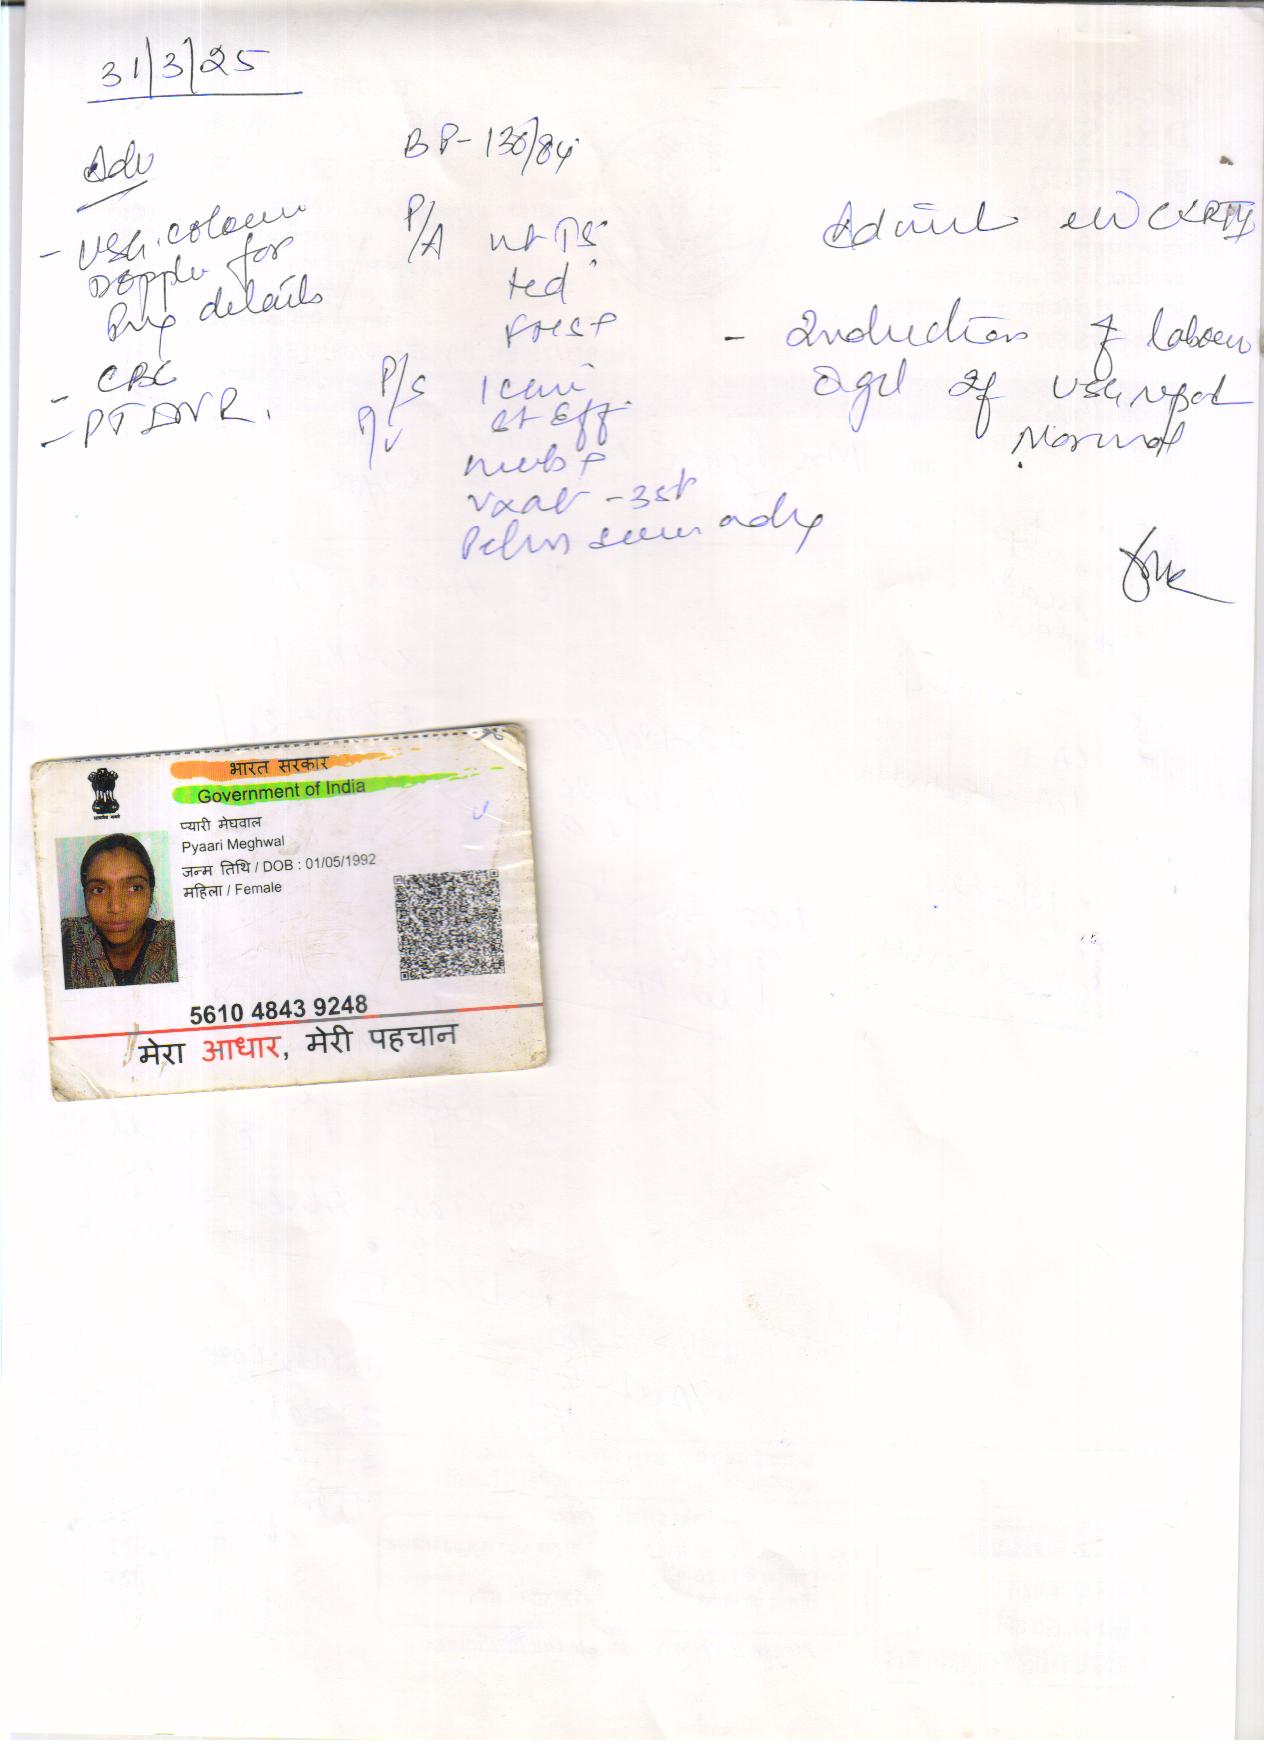 31/3/25
Adv
- USG. colour
Doppler for
details
- CBC
- PT INR.
BP- 130/84
P/A ut TS
FHS+
P/S 1 cm
P/V
st Eff.
memb +
Pelvis seem adq
Admit in
- Induction of labour
If USG report
Normal
भारत सरकार
Government of India
प्यारी मेघवाल
Pyaari Meghwal
जन्म तिथि / DOB : 01/05/1992
महिला / Female
5610 4843 9248
मेरा आधार, मेरी पहचान